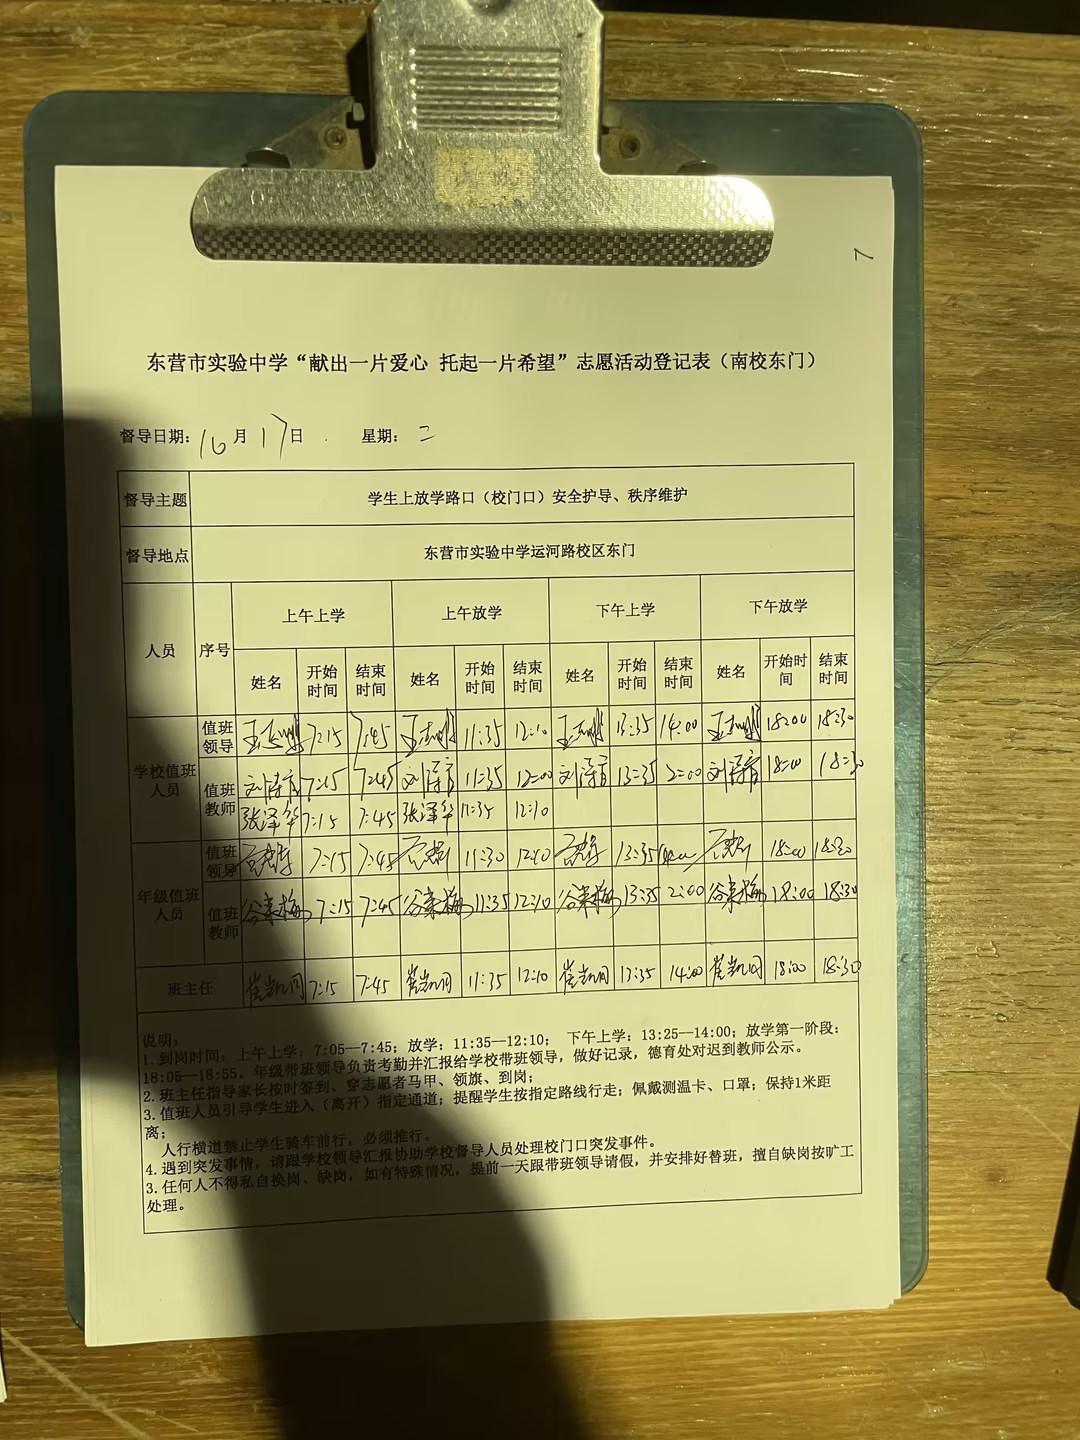 7
东营市实验中学“献出一片爱心 托起一片希望”志愿活动登记表（南校东门）
督导日期：10月17日. 星期：二
督导主题 学生上放学路口（校门口）安全护导、秩序维护
督导地点 东营市实验中学运河路校区东门
人员 序号 上午上学 上午放学 下午上学 下午放学
姓名 开始时间 结束时间 姓名 开始时间 结束时间 姓名 开始时间 结束时间 姓名 开始时间 结束时间
学校值班人员 值班领导 7:15 7:45 11:35 12:10 13:35 14:00 18:00 18:30
值班教师 7:15 7:45 11:35 12:00 13:35 2:00 18:00 18:30
张泽华 7:15 7:45 张泽华 11:35 12:10
年级值班人员 值班领导 7:15 7:45 11:30 12:10 13:35 18:00 18:30
值班教师 谷来梅 7:15 7:45 谷来梅 11:35 12:10 谷来梅 13:35 2:00 谷来梅 18:00 18:30
班主任 7:15 7:45 11:35 12:10 13:35 14:00 18:00 18:30
说明：
1.到岗时间：上午上学：7:05—7:45；放学：11:35—12:10； 下午上学：13:25—14:00；放学第一阶段：
18:05—18:55，年级带班领导负责考勤并汇报给学校带班领导，做好记录，德育处对迟到教师公示。
2.班主任指导家长按时签到、穿志愿者马甲、领旗、到岗；
3.值班人员引导学生进入（离开）指定通道；提醒学生按指定路线行走；佩戴测温卡、口罩；保持1米距
离；
人行横道禁止学生骑车前行，必须推行。
4.遇到突发事情，请跟学校领导汇报协助学校督导人员处理校门口突发事件。
3.任何人不得私自换岗、缺岗，如有特殊情况，提前一天跟带班领导请假，并安排好替班，擅自缺岗按旷工
处理。